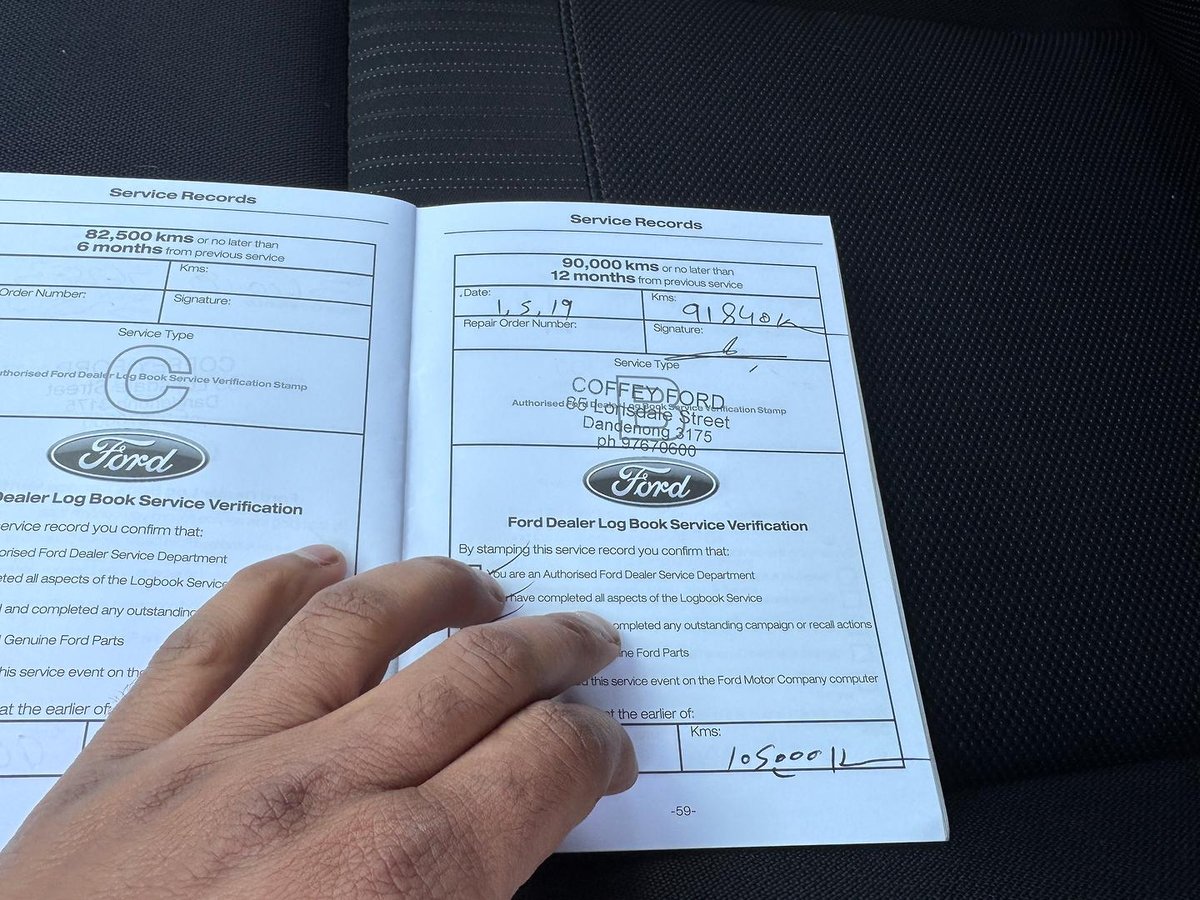 Service Records
82,500 kms or no later than
6 months from previous service
Kms:
Order Number:
Signature:
Service Type
C
Authorised Ford Dealer Log Book Service Verification Stamp
Ford
Dealer Log Book Service Verification
service record you confirm that:
orised Ford Dealer Service Department
eted all aspects of the Logbook Service
d and completed any outstanding
Genuine Ford Parts
his service event on the
at the earlier of:
Service Records
90,000 kms or no later than
12 months from previous service
Date:
1, 5, 19
Kms:
91840K
Repair Order Number:
Signature:
Service Type
B
COFFEY FORD
Authorised Ford Dealer Log Book Service Verification Stamp
85 Lonsdale Street
Dandenong 3175
ph 97670600
Ford
Ford Dealer Log Book Service Verification
By stamping this service record you confirm that:
You are an Authorised Ford Dealer Service Department
have completed all aspects of the Logbook Service
ompleted any outstanding campaign or recall actions
ne Ford Parts
d this service event on the Ford Motor Company computer
t the earlier of:
Kms:
105000K
-59-